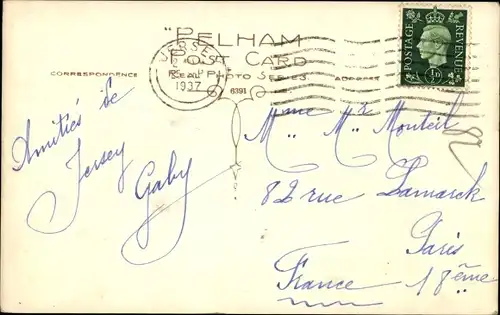 "PELHAM
POST CARD
REAL PHOTO SERIES
CORRESPONDENCE
ADDRESS
6391
JERSEY
1937
POSTAGE
REVENUE
½D
Amitiés de
Jersey
Gaby
Mme Mr Monteil
82 rue Lamarck
Paris
France 18ème